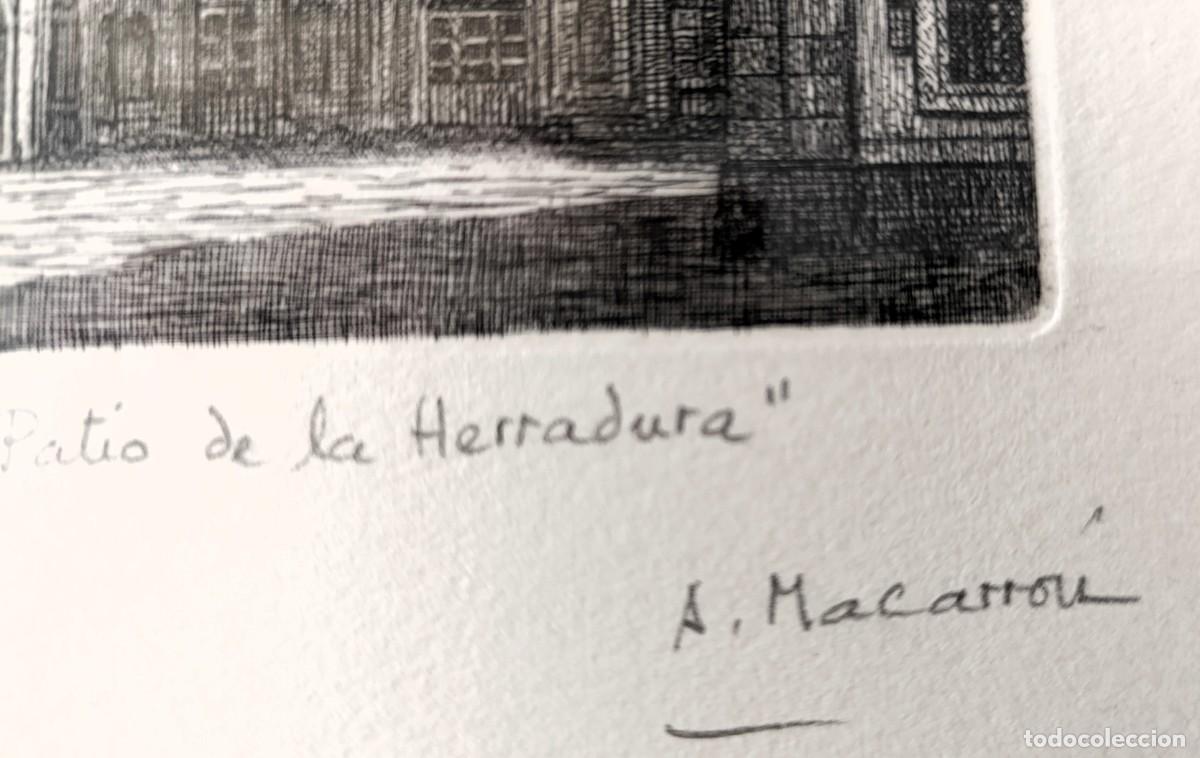 Patio de la Herradura"
A. Macarrón
todocoleccion